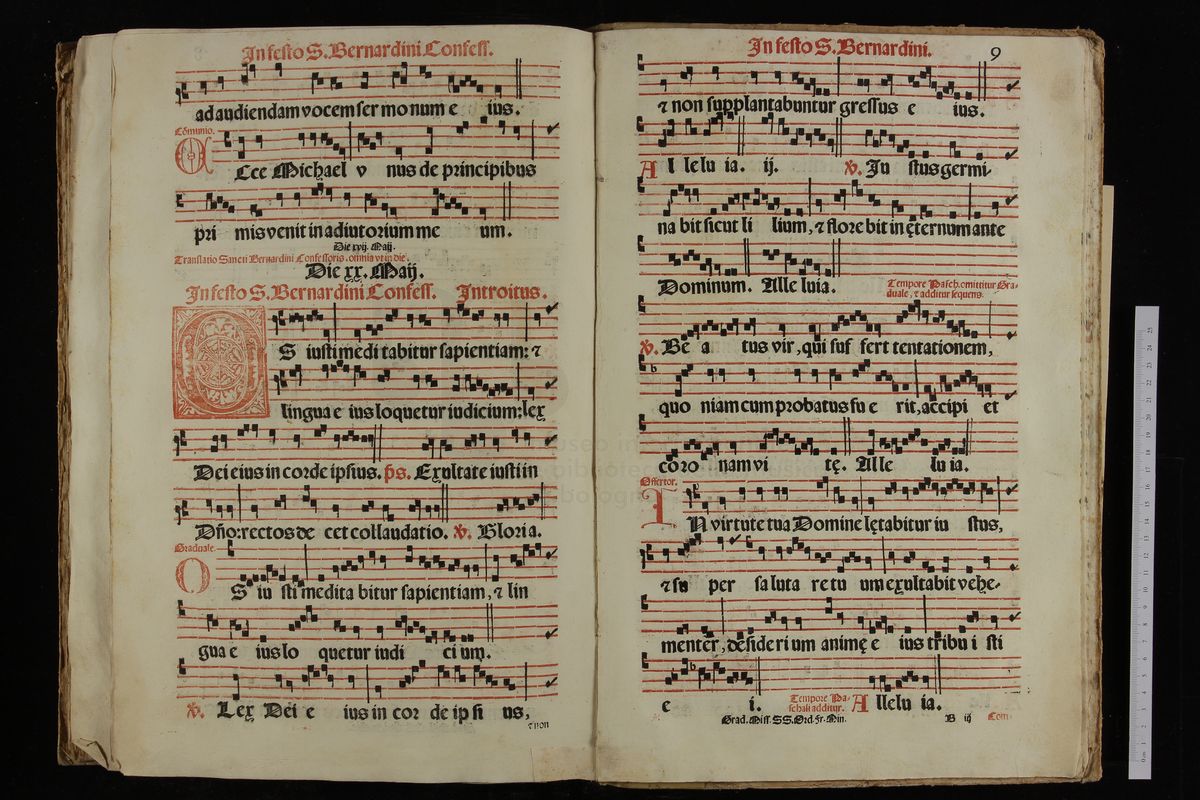 In festo S. Bernardini Confess.
ad audiendam vocem ser mo num e ius.
Cõmunio.
Ecce Michael v nus de principibus
pri mis venit in adiutorium me um.
Die xvij. Maij.
Translatio Sancti Bernardini Confessoris. omnia vt in die.
Die xx. Maij.
In festo S. Bernardini Confess. Introitus.
OS iusti medi tabitur sapientiam: ⁊
lingua e ius loquetur iudicium: lex
Dei eius in corde ipsius. ps. Exultate iusti in
Dño: rectos de cet collaudatio. ℣. Gloria.
Graduale.
OS iu sti medita bitur sapientiam, ⁊ lin
gua e ius lo quetur iudi ci um.
℣. Lex Dei e ius in cor de ip si us,
⁊ non
In festo S. Bernardini. 9
⁊ non supplantabuntur gressus e ius.
Al lelu ia. ij. ℣. Iu stus germi-
na bit sicut li lium, ⁊ flore bit in ęternum ante
Dominum. Alle luia.
Tempore Pasch. omittitur Gra-
duale, ⁊ additur sequens.
℣. Be a tus vir, qui suf fert tentationem,
quo niam cum probatus fu e rit, accipi et
coro nam vi tę. Alle lu ia.
Offertor.
IN virtute tua Domine lętabitur iu stus,
⁊ su per saluta re tu um exultabit vehe-
menter, desideri um animę e ius tribu i sti
e i.
Tempore Pa-
schali additur.
A llelu ia.
Grad. Miss. SS. Ord. Fr. Min. B iij Com-